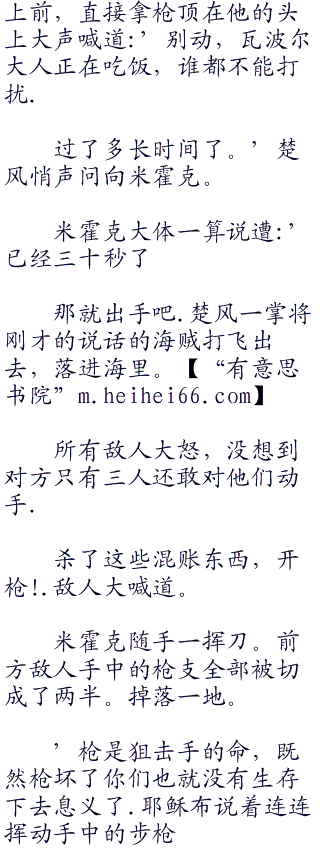 上前，直接拿枪顶在他的头
上大声喊道:’别动，瓦波尔
大人正在吃饭，谁都不能打
扰.
过了多长时间了。’楚
风悄声问向米霍克。
米霍克大体一算说遭:’
已经三十秒了
那就出手吧.楚风一掌将
刚才的说话的海贼打飞出
去，落进海里。【“有意思
书院”m.heihei66.com】
所有敌人大怒，没想到
对方只有三人还敢对他们动
手.
杀了这些混账东西，开
枪!.敌人大喊道。
米霍克随手一挥刀。前
方敌人手中的枪支全部被切
成了两半。掉落一地。
’枪是狙击手的命，既
然枪坏了你们也就没有生存
下去息义了.耶稣布说着连连
挥动手中的步枪